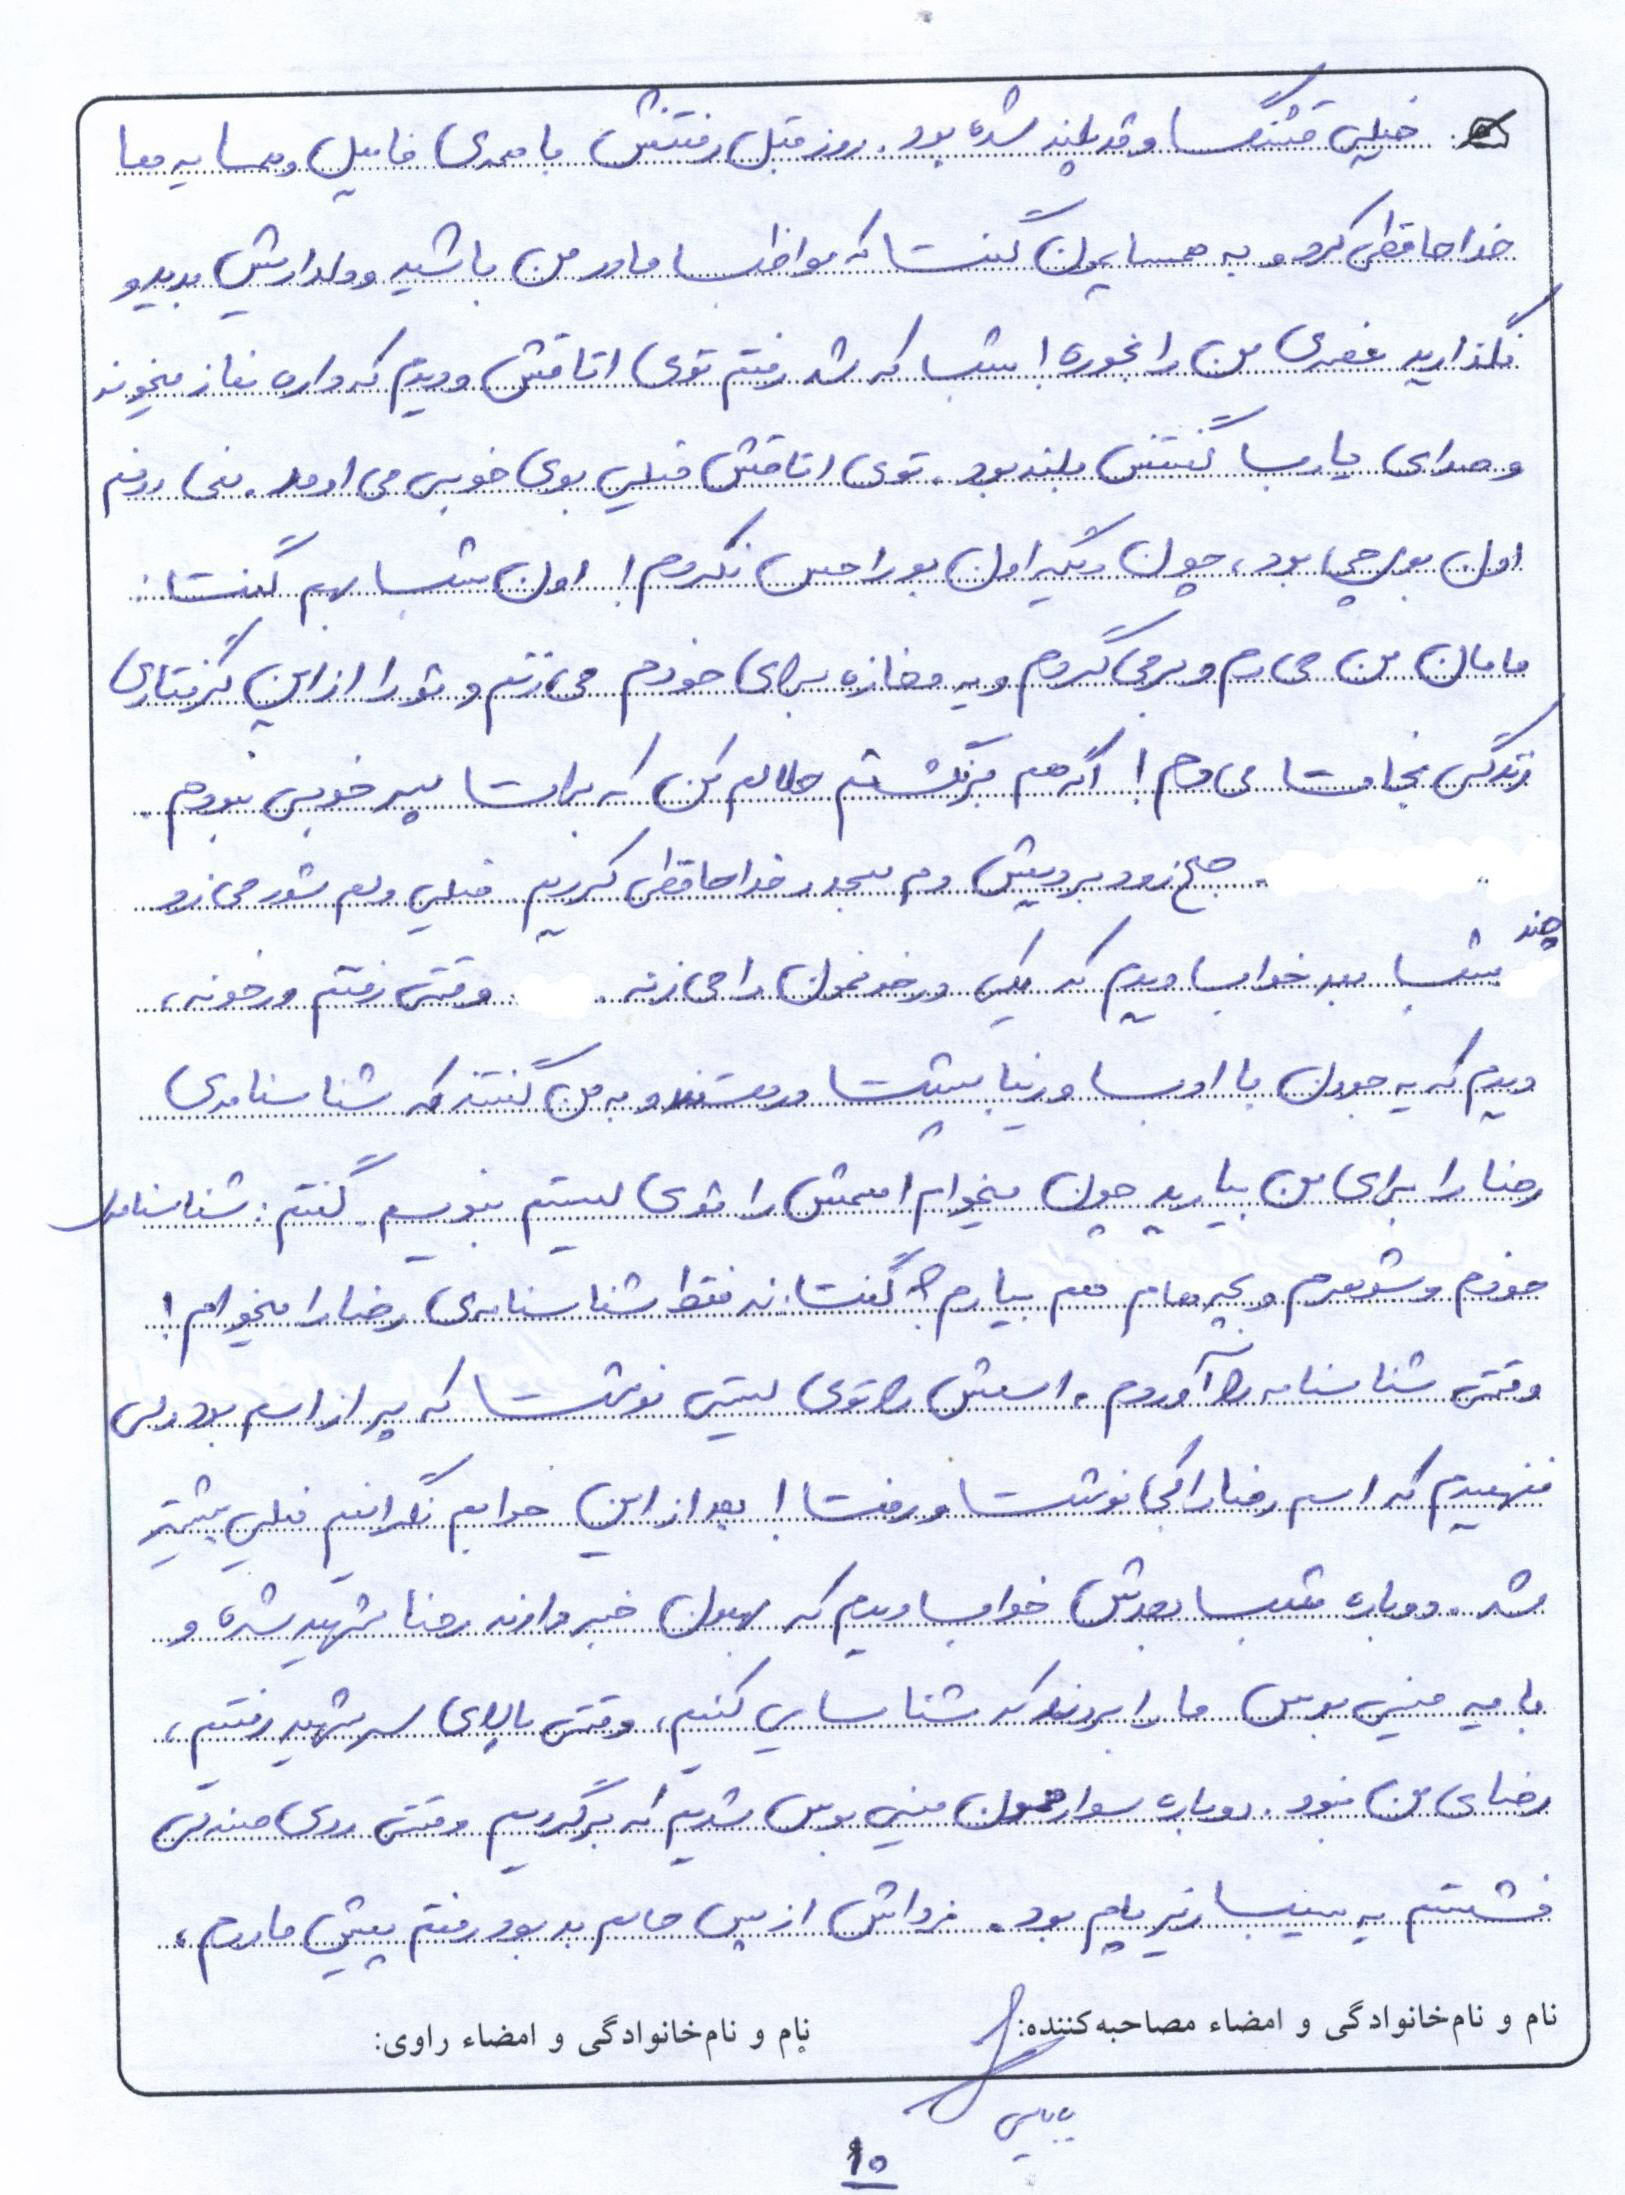 خیلی قشنگ و قد بلند شده بود. روز قبل رفتنش با همه‌ی فامیل و همسایه ها
خداحافظی کرد و به همسایمون گفت که مواظب مادر من باشید و دلداریش بدید و
نگذارید غصه‌ی من را بخوره! شب که شد رفتم توی اتاقش و دیدم که داره نماز میخونه
و صدای یارب گفتنش بلند بود. توی اتاقش خیلی بوی خوبی می اومد. نمی دونم
اون بوی چی بود، چون دیگه اون بو را حس نکردم! اون شب بهم گفت:
مامان من می رم و برمی گردم و یه مغازه برای خودم می زنم و تو را از این گرفتاری
زندگی نجات می دم! اگر هم برنگشتم حلالم کن که برات پسر خوبی نبودم.
صبح زود بردیمش دم مسجد و خداحافظی کردیم. خیلی دلم شور می زد
چند
شب بعد خواب دیدم که یکی در خونمون را می زنه. وقتی رفتم در خونه،
دیدم که یه جوون با ادب و زیبا پشت در هستند و به من گفتند که شناسنامه‌ی
رضا را برای من بیارید چون میخوام اسمش را توی لیستم بنویسم. گفتم: شناسنامه
خودم و شوهرم و بچه هام هم بیارم؟ گفت: نه فقط شناسنامه‌ی رضا را میخوام!
وقتی شناسنامه را آوردم، اسمش را توی لیستی نوشت که پر از اسم بود ولی
نفهمیدم که اسم رضا را کجا نوشت و رفت! بعد از این خوابم نگرانیم خیلی بیشتر
شد. دوباره شب بعدش خواب دیدم که بهمون خبر دادند رضا شهید شده و
با یه مینی بوس ما را بردند که شناسایی کنیم، وقتی بالای سر شهید رفتیم،
رضای من نبود. دوباره سوار همون مینی بوس شدیم که برگردیم وقتی روی صندلی
نشستم یه سیب زیر پام بود. فرداش از بس حالم بد بود رفتم پیش مادرم،
نام و نام‌خانوادگی و امضاء مصاحبه‌کننده:
نام و نام‌خانوادگی و امضاء راوی:
۱۰